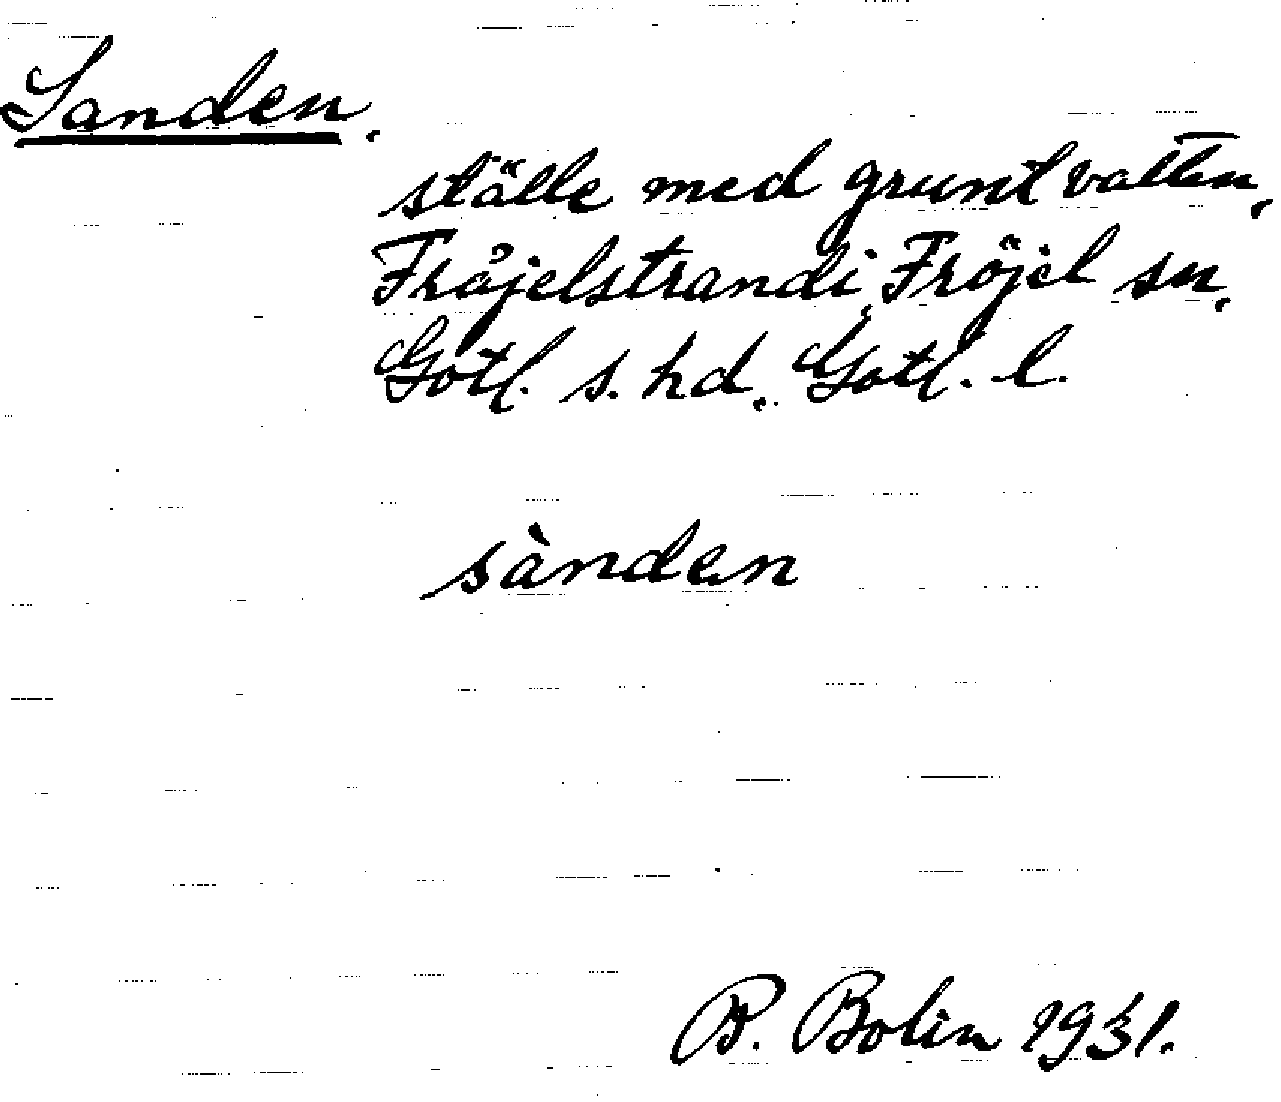 Sanden,
ställe med grunt vatten,
Fröjelstrandi, Fröjel sn,
Gotl. s. hd., Gotl. l.
sànden
B. Bolin 1931.